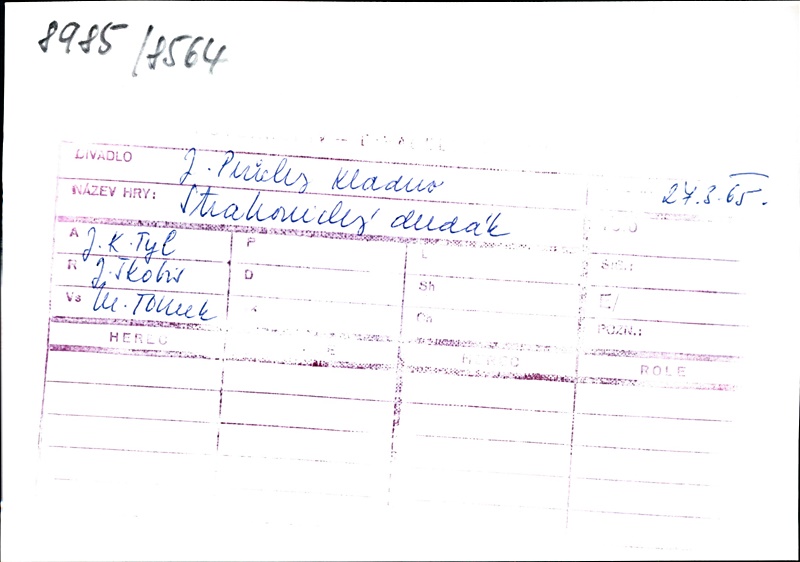 8985/8564
DIVADLO J. Průchy Kladno 27.3.65.
NÁZEV HRY: Strakonický dudák
A J.K. Tyl P L
R J. Škobis D Sh
Vs M. Tomek Ch POZN.:
HEREC HEREC ROLE